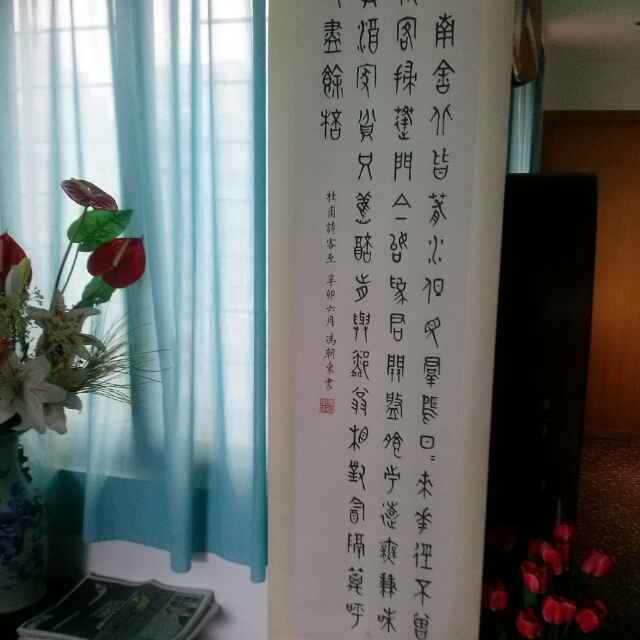 南舍北皆春水但見群鷗日〻來華徑不曾
客掃蓬門今始為君開盤飧市遠無兼味
酒家貧只舊醅肯與鄰翁相對飲隔籬呼
盡餘桮
杜甫詩客至 辛卯六月 馮朝東書